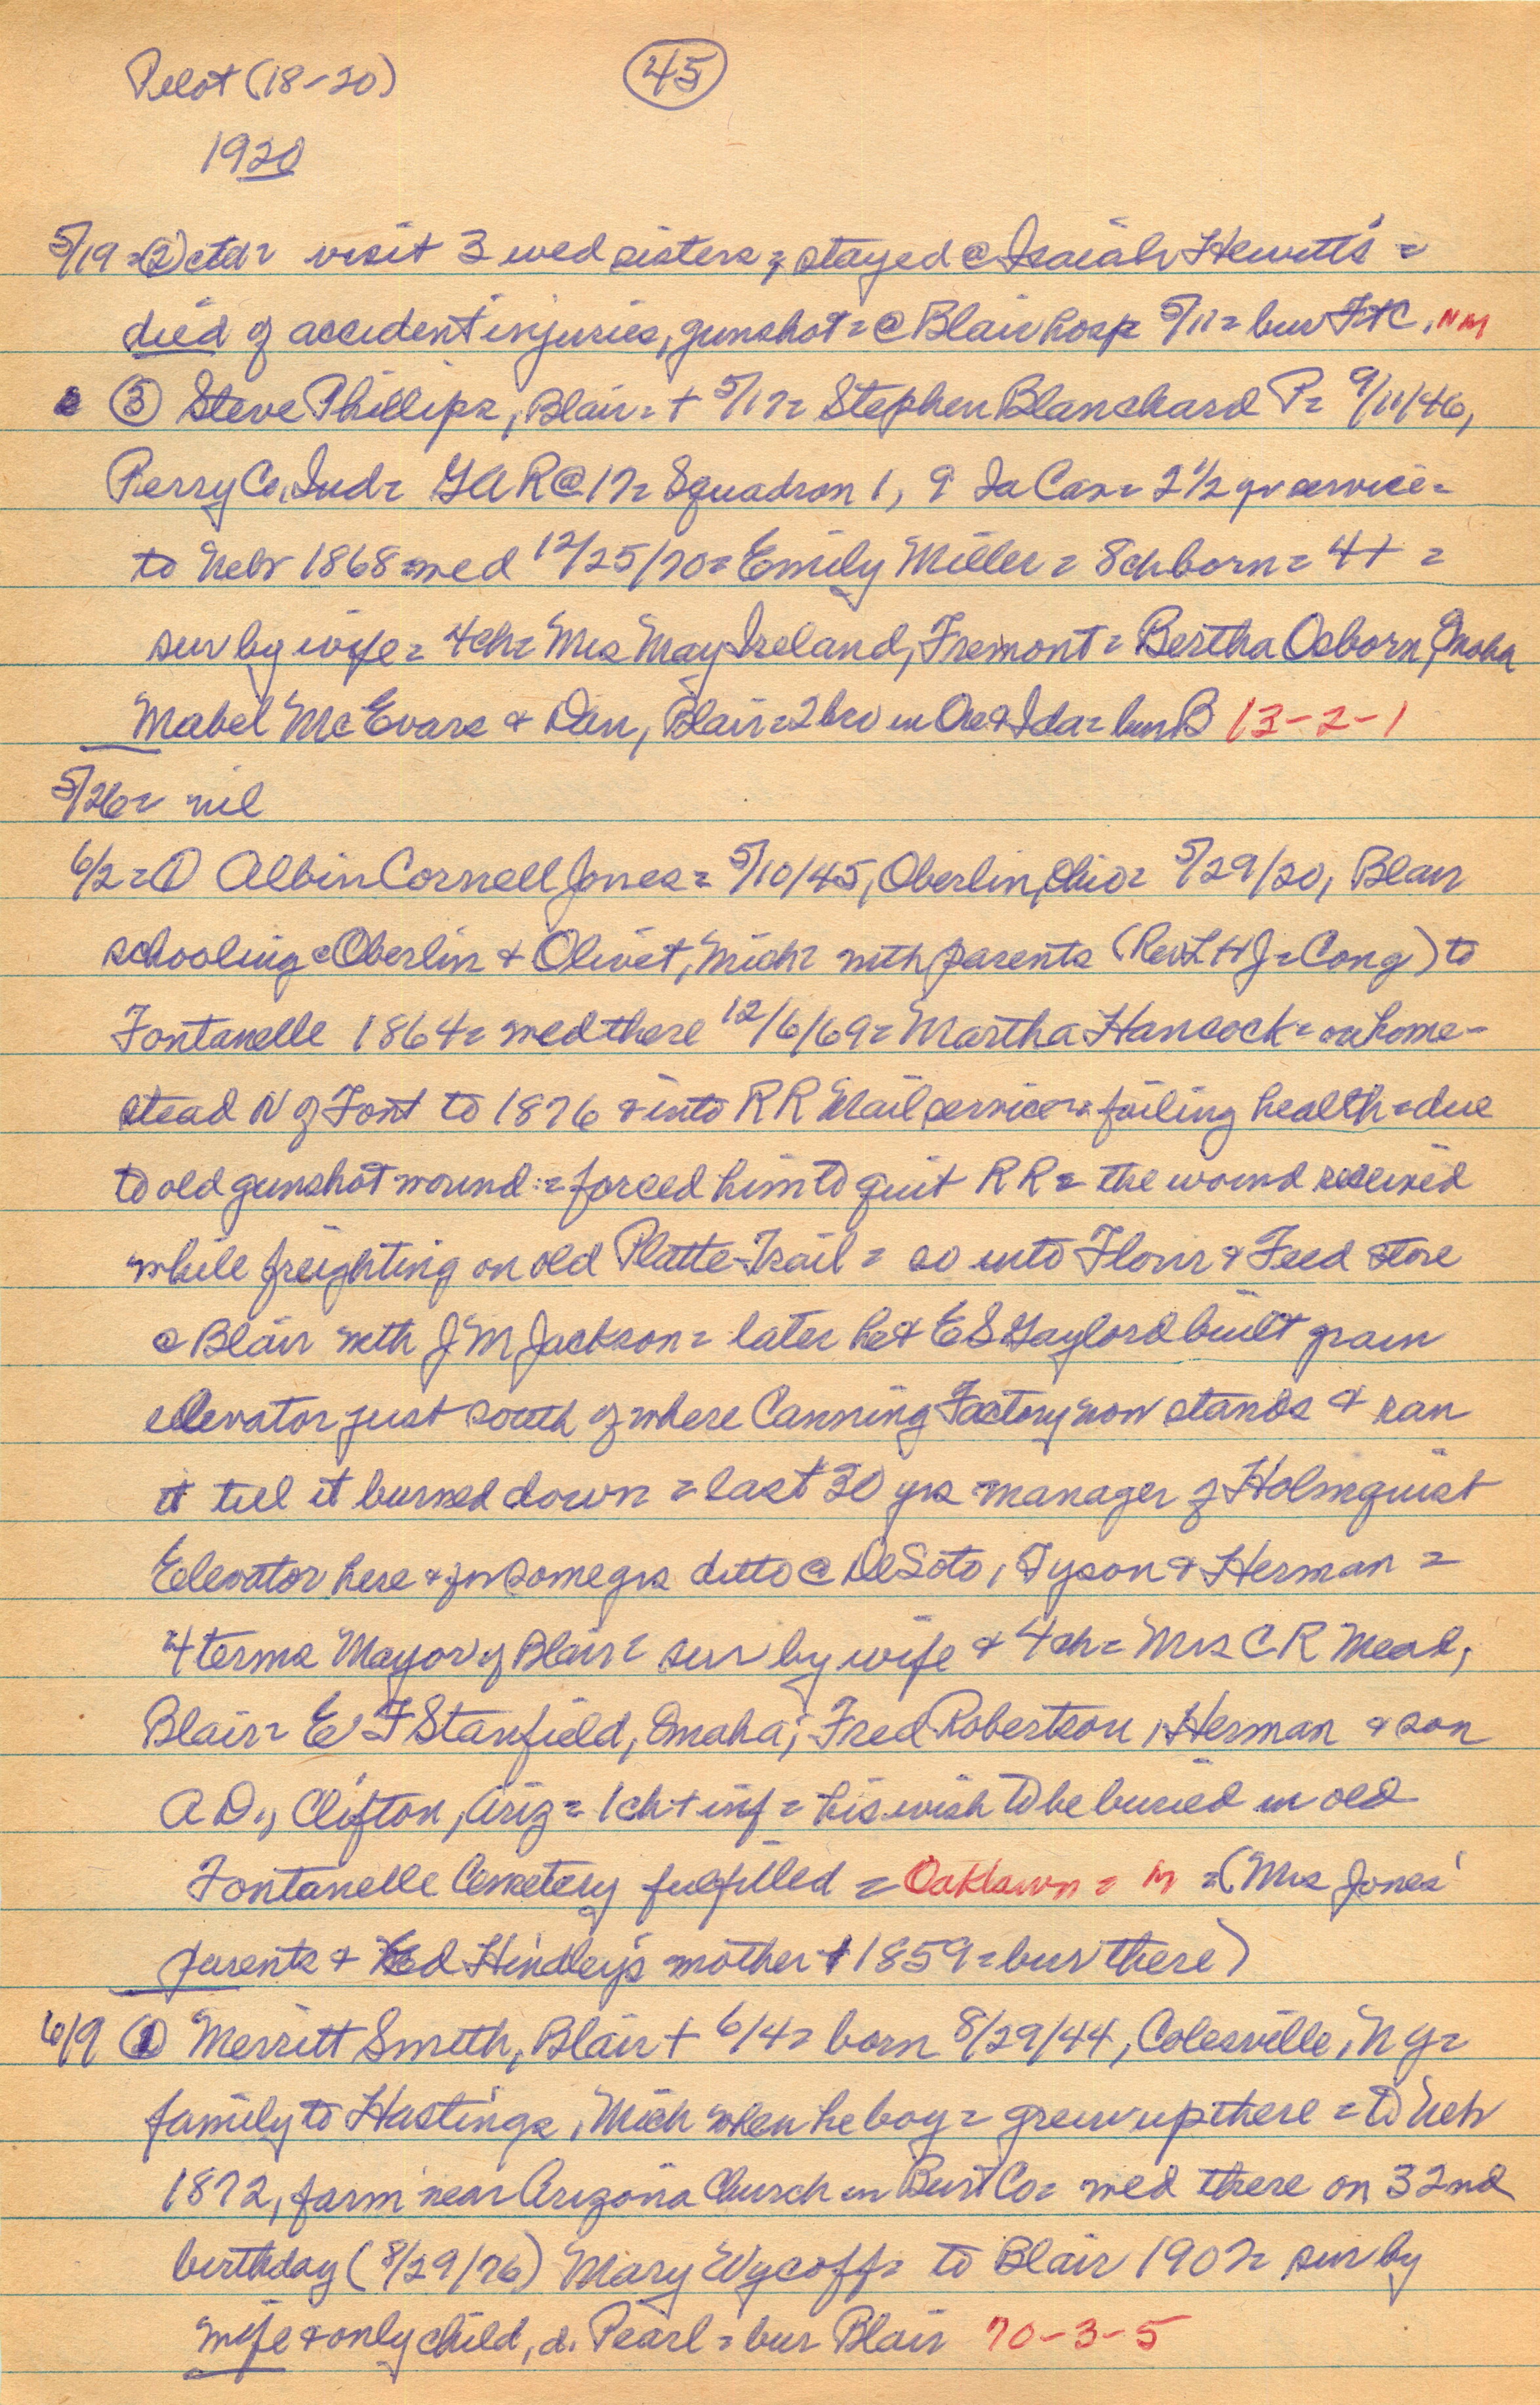 Pilot (18-20)
45
1920
5/19 = (2) ctd = visit 3 wed sisters; stayed @ Isaiah Hewitt's =
died of accident injuries, gunshot = @ Blair hosp 5/11 = bur Ft C. NM
(3) Steve Phillips, Blair = + 5/17 = Stephen Blanchard P = 9/11/46,
Perry Co, Ind = GAR @ 17 = Squadron 1, 9 Ia Cav = 2 1/2 yr service =
to Nebr 1868 = wed 12/25/70 = Emily Miller = 8 ch born = 4+ =
sur by wife = 4 ch = Mrs May Ireland, Fremont = Bertha Osborn, Omaha
Mabel McEvars & Dan, Blair = 2 bro in Ore & Ida = bur B 13-2-1
5/26 = nil
6/2 = (1) Albin Cornell Jones = 5/10/45, Oberlin, Ohio = 5/29/20, Blair
schooling @ Oberlin & Olivet, Mich = with parents (Rev L H J = Cong) to
Fontanelle 1864 = wed there 12/6/69 = Martha Hancock = on home-
stead N of Font to 1876 & into RR Mail service = failing health = due
to old gunshot wound = forced him to quit RR = the wound received
while freighting on old Platte Trail = so into Flour & Feed store
@ Blair with J M Jackson = later he & E S Gaylord built grain
elevator just south of where Canning Factory now stands & ran
it till it burned down = last 30 yrs manager of Holmquist
Elevator here & for some yrs ditto @ DeSoto, Tyson & Herman =
4 terms Mayor of Blair = sur by wife & 4 ch = Mrs C R Mead,
Blair = E F Stanfield, Omaha; Fred Robertson, Herman & son
A D., Clifton, Ariz = 1 ch + inf = his wish to be buried in old
Fontanelle Cemetery fulfilled = Oaklawn = M = (Mrs Jones'
parents & Ed Hindley's mother + 1859 = bur there)
6/9 (1) Merritt Smith, Blair + 6/4 = born 8/29/44, Colesville, N Y =
family to Hastings, Mich when he boy = grew up there = to Neb
1872, farm near Arizona Church in Burt Co = wed there on 32nd
birthday (8/29/76) Mary Wycoff = to Blair 1907 = sur by
wife & only child, d. Pearl = bur Blair 70-3-5